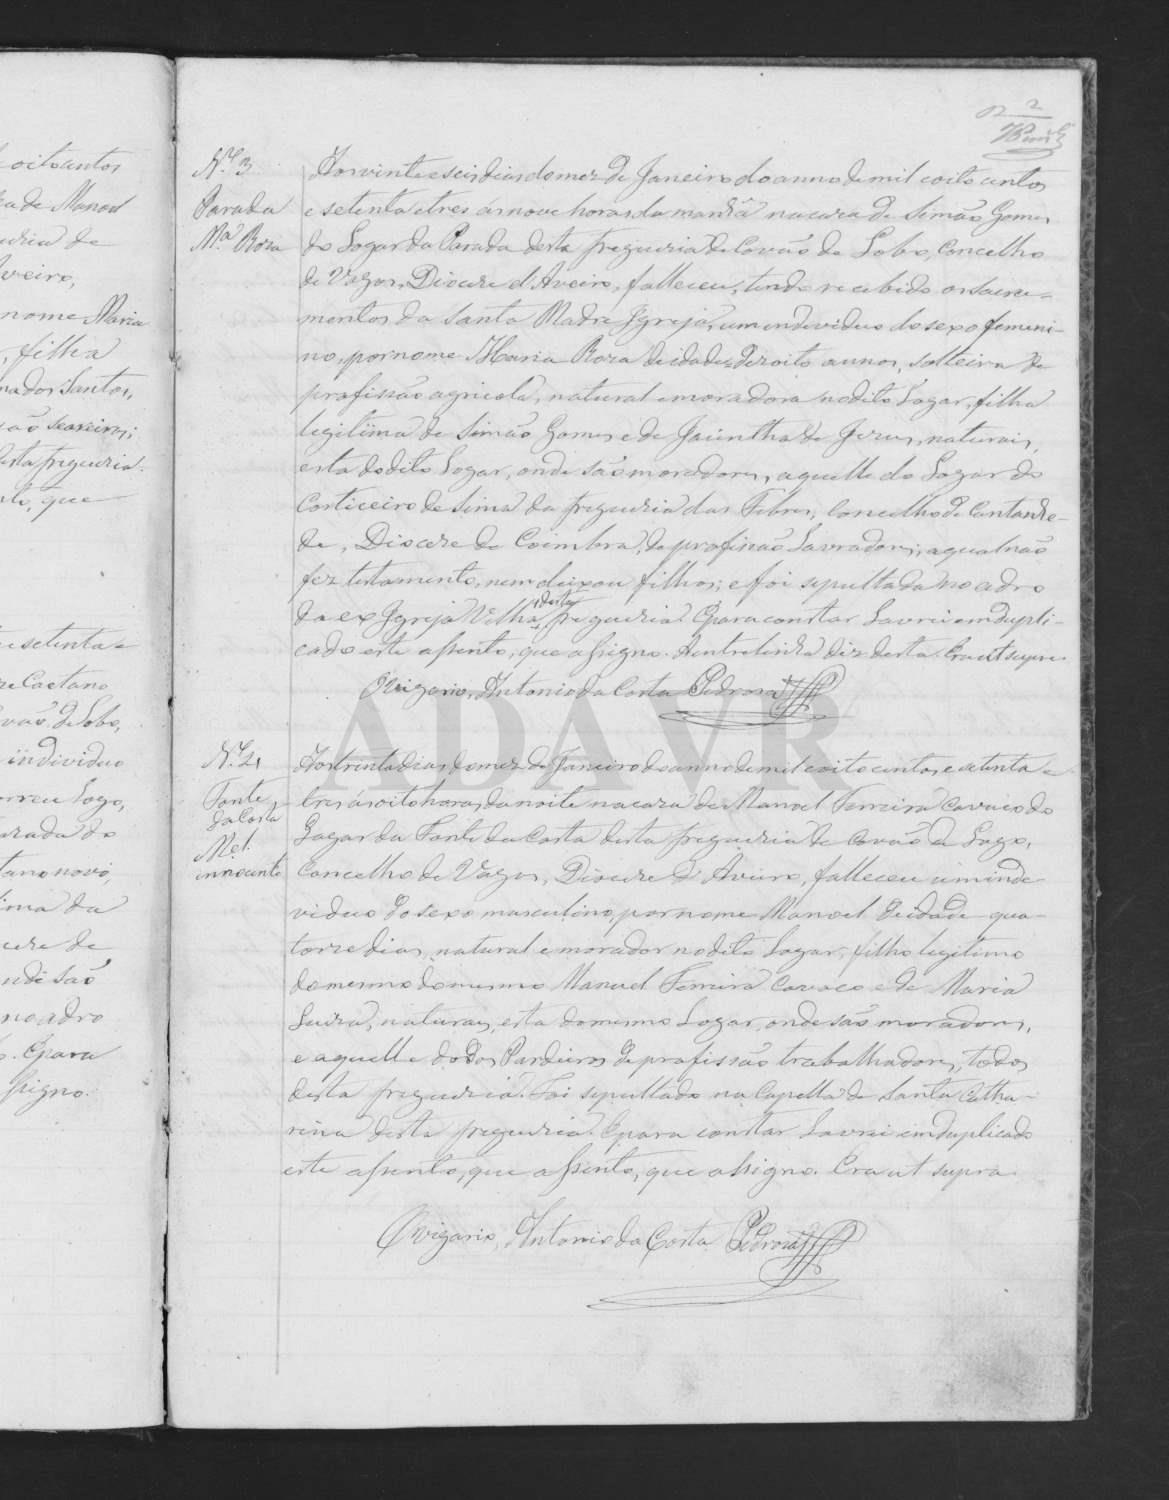 2
oitocentos
ra de Manoel
guezia de
Aveiro,
nome Maria
, filha
na dos Santos,
desta freguezia.
to, que
e setenta e
Caetano
vão de Lobo,
individuo
morreu logo,
rada do
tano novo,
ima da
cese de
onde são
no adro
. E para
ssigno.
Nº 3
Parada
M.ª Roza
Aos vinte e seis dias do mez de Janeiro do anno de mil e oito centos
e setenta e tres ás nove horas da manhã na caza de Simão Gomes
do Logar da Parada desta freguezia de Covão do Lobo, Concelho
de Vagos, Diocese d'Aveiro, falleceu, tendo recebido os Sacra-
mentos da Santa Madre Igreja, um individuo do sexo femeni-
no, por nome Maria Roza de idade dezoito annos, solteira de
profissão agricola, natural e moradora no dito Logar, filha
legitima de Simão Gomes e de Jacintha de Jezus, naturais,
esta do dito Logar, onde são moradores, aquelle do Logar do
Corticeiro de Sima da freguezia das Febres, Concelho de Cantanhe-
de, Diocese de Coimbra, de profissão Lavradores; a qual não
fez testamento, nem deixou filhos; e foi sepultada no adro
da ex Igreja Velha desta freguezia. E para constar Lavrei em dupli-
cado este assento, que assigno. A entrelinha diz desta. Era ut supra
O vigario, Antonio da Costa Pedrosa
ADAVR
Nº 4
Fonte
da Costa
Mel.
innocente
Aos trinta dias do mez de Janeiro do anno de mil e oito centos e setenta e
tres ás oito horas da noite na caza de Manoel Ferreira Cavaco do
Logar da Fonte da Costa desta freguezia de Covão de Logo,
Concelho de Vagos, Diocese d'Aveiro, falleceu um inde-
viduo do sexo masculino, por nome Manoel de idade qua-
torze dias, natural e morador no dito Logar, filho legitimo
do mesmo do mesmo Manuel Ferreira Cavaco e de Maria
Luiza, naturaes, esta do mesmo Logar, onde são moradores,
e aquelle do dos Pardieiros de profissão trabalhadores, todos
desta freguezia. Foi sepultado na Capella de Santa Catha-
rina desta freguezia. E para constar Lavrei em duplicado
este assento, que assento, que assigno. Era ut supra.
O vigario, Antonio da Costa Pedrosa